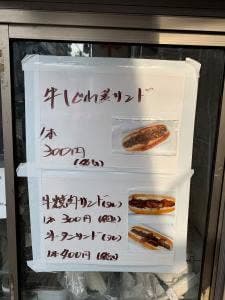 牛しぐれ煮サンド
1本
300円
(税込)
牛焼肉サンド(タレ)
1本 300円 (税込)
牛タンサンド(タレ)
1本 400円 (税込)